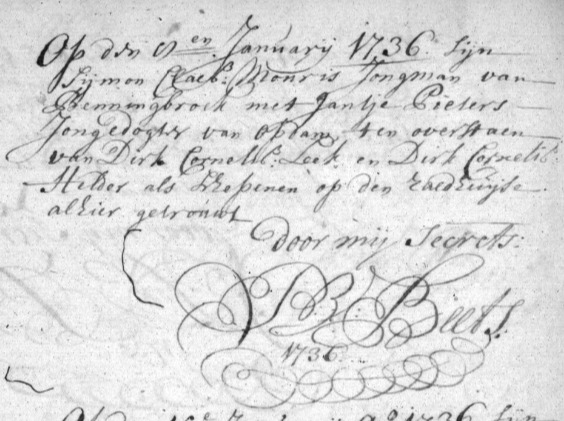 Op den 8en January 1736 sijn
Sijmon Claesz: Mouris Jongman van
Benningbroek met Jantje Pieters
Jongedogter van Obdam ten overstaen
van Dirk Cornelisz: Leek en Dirk Cornelisz:
Helder als Schepenen op den raedhuijse
alhier getrouwt
Door mij Secrets:
Beets.
1736
1736 sijn